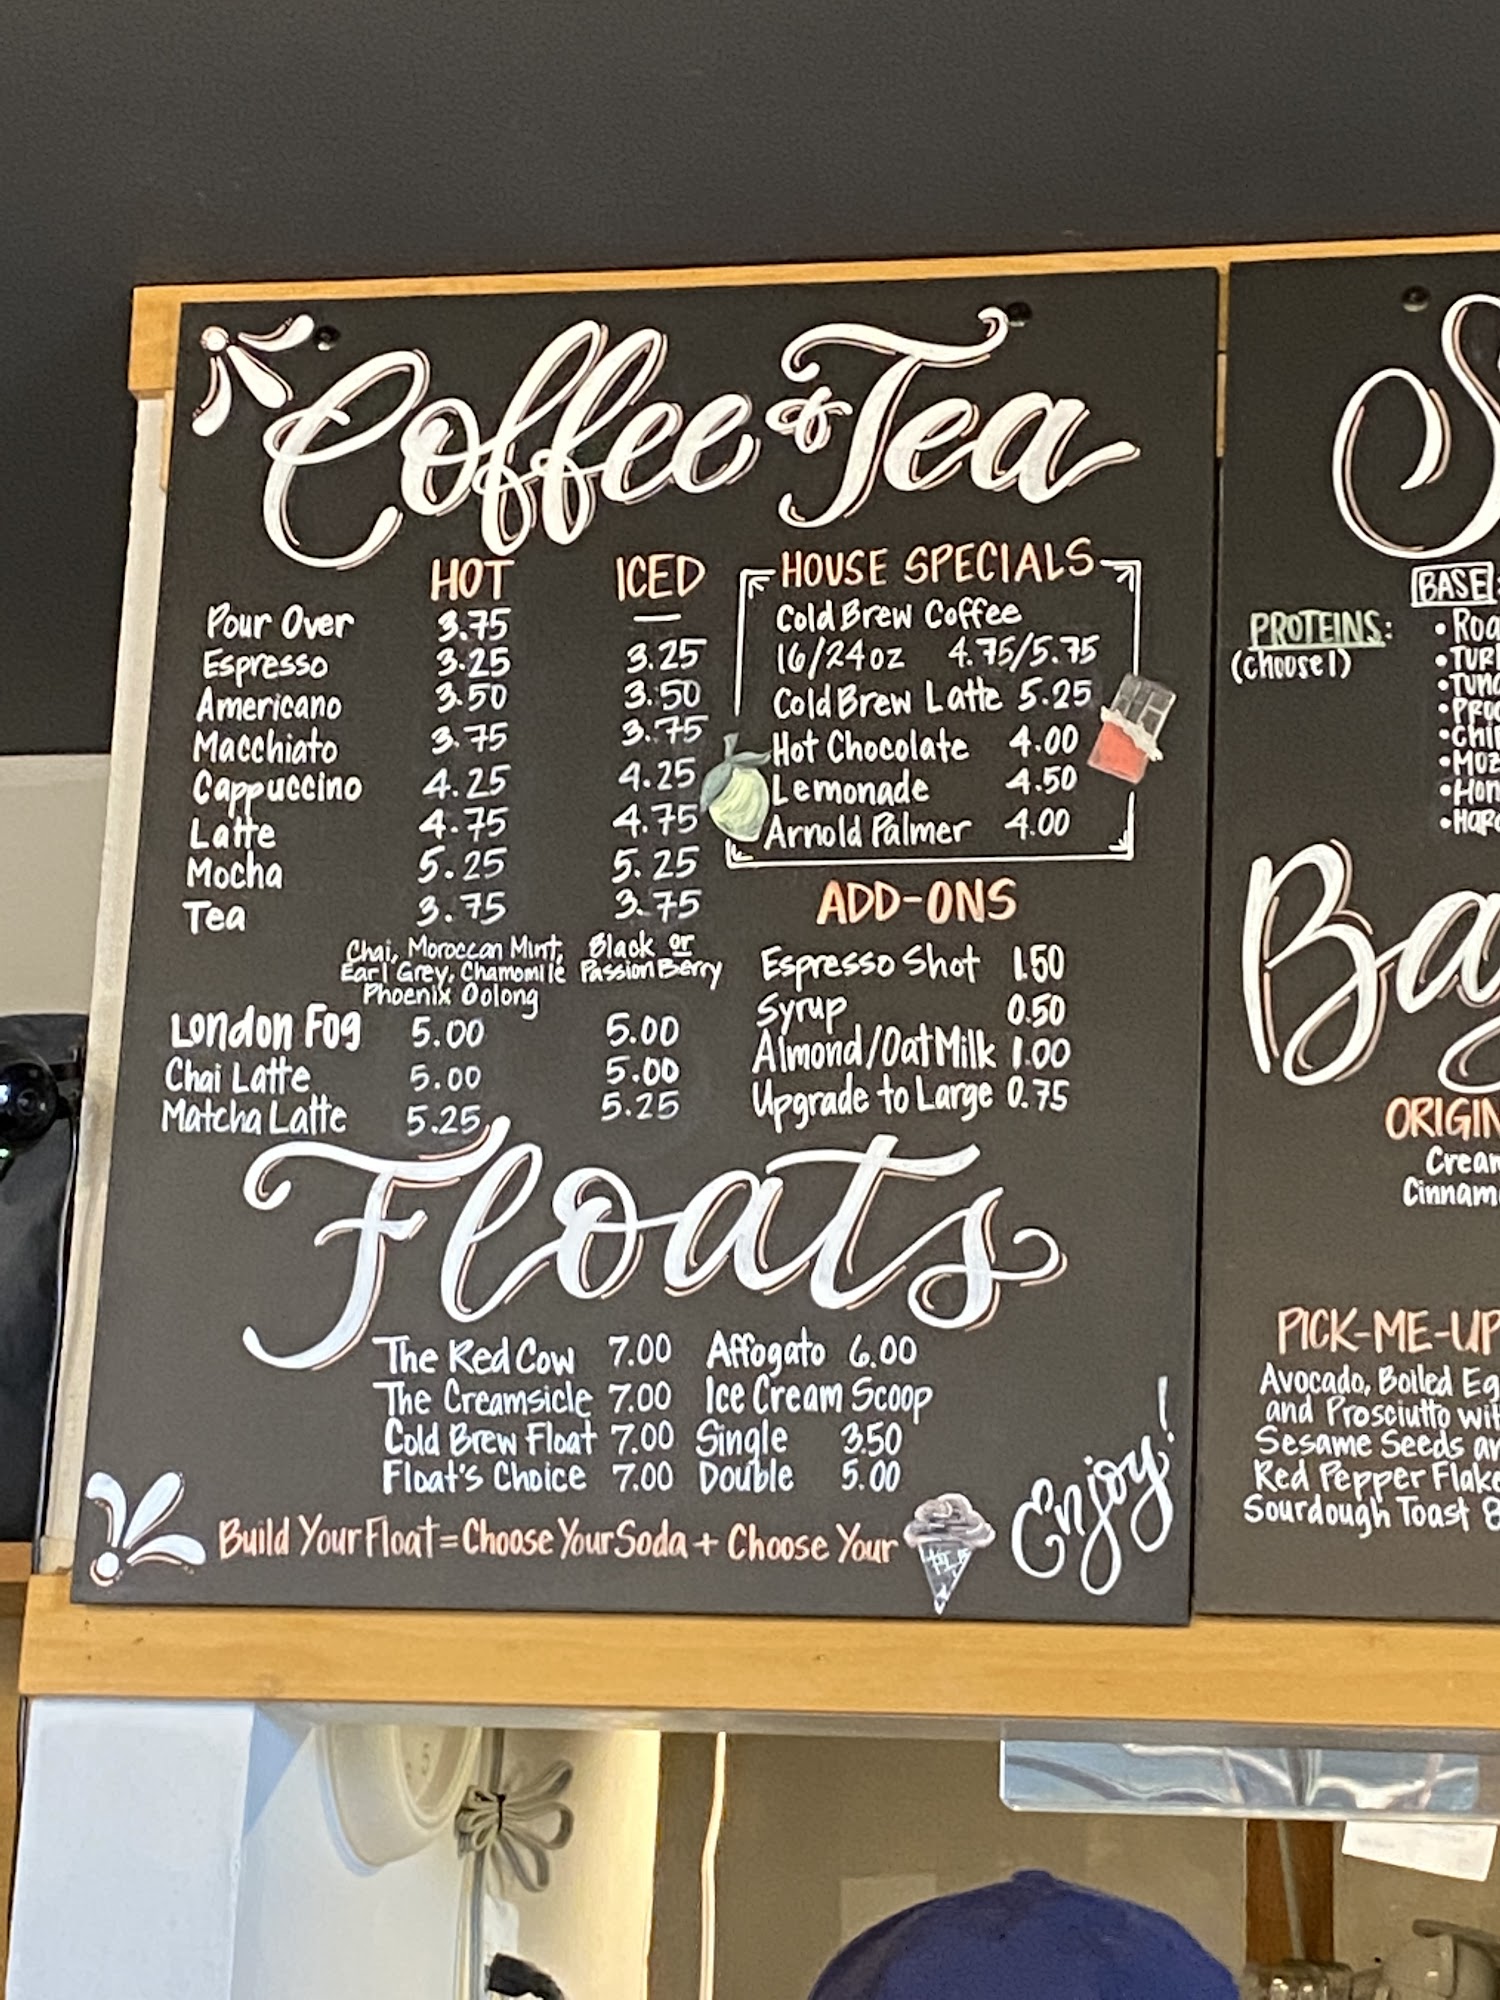 Coffee & Tea
HOT ICED
Pour Over 3.75 —
Espresso 3.25 3.25
Americano 3.50 3.50
Macchiato 3.75 3.75
Cappuccino 4.25 4.25
Latte 4.75 4.75
Mocha 5.25 5.25
Tea 3.75 3.75
Chai, Moroccan Mint, Black or
Earl Grey, Chamomile Passion Berry
Phoenix Oolong
London Fog 5.00 5.00
Chai Latte 5.00 5.00
Matcha Latte 5.25 5.25
HOUSE SPECIALS
Cold Brew Coffee
16/24oz 4.75/5.75
Cold Brew Latte 5.25
Hot Chocolate 4.00
Lemonade 4.50
Arnold Palmer 4.00
ADD-ONS
Espresso Shot 1.50
Syrup 0.50
Almond/Oat Milk 1.00
Upgrade to Large 0.75
Floats
The Red Cow 7.00 Affogato 6.00
The Creamsicle 7.00 Ice Cream Scoop
Cold Brew Float 7.00 Single 3.50
Float's Choice 7.00 Double 5.00
Build Your Float = Choose Your Soda + Choose Your
Enjoy!
S
BASE
PROTEINS:
(choose 1)
• Roa
• TUR
• TUNA
• PRO
• CHI
• MOZ
• HAR
Ba
ORIGIN
Crea
Cinnam
PICK-ME-UP
Avocado, Boiled Eg
and Prosciutto wit
Sesame Seeds an
Red Pepper Flake
Sourdough Toast 8